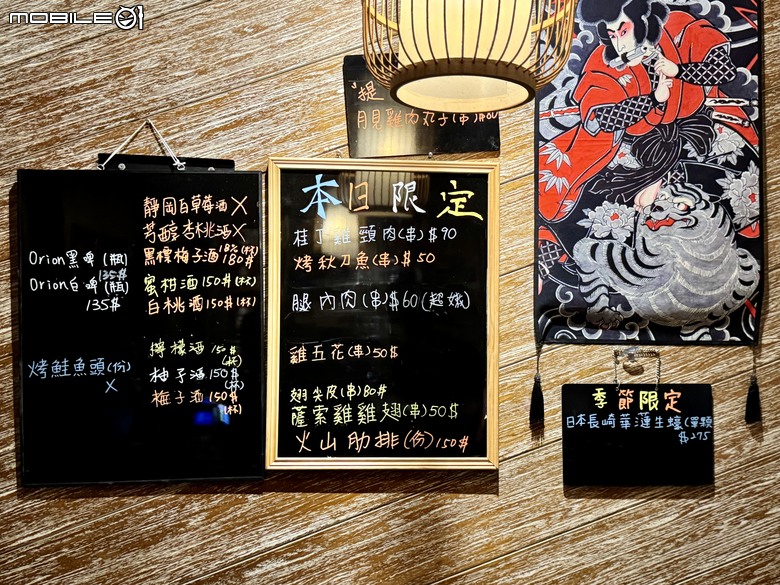 MOBILE01
提
月見雞肉丸子(串)
靜岡白草莓酒X
芳醇杏桃酒X
黑糖梅子酒18%(杯)180$
蜜柑酒150$(杯)
白桃酒150$(杯)
檸檬酒150$(杯)
柚子酒150$(杯)
梅子酒150$(杯)
Orion黑啤(瓶)
135$
Orion白啤(瓶)
135$
烤鮭魚頭(份)
X
本日限定
桂丁雞頸肉(串)$90
烤秋刀魚(串)$50
腿內肉(串)$60(超嫩)
雞五花(串)50$
翅尖皮(串)80$
薩索雞雞翅(串)50$
火山肋排(份)150$
季節限定
日本長崎華蓮生蠔(單顆
$275